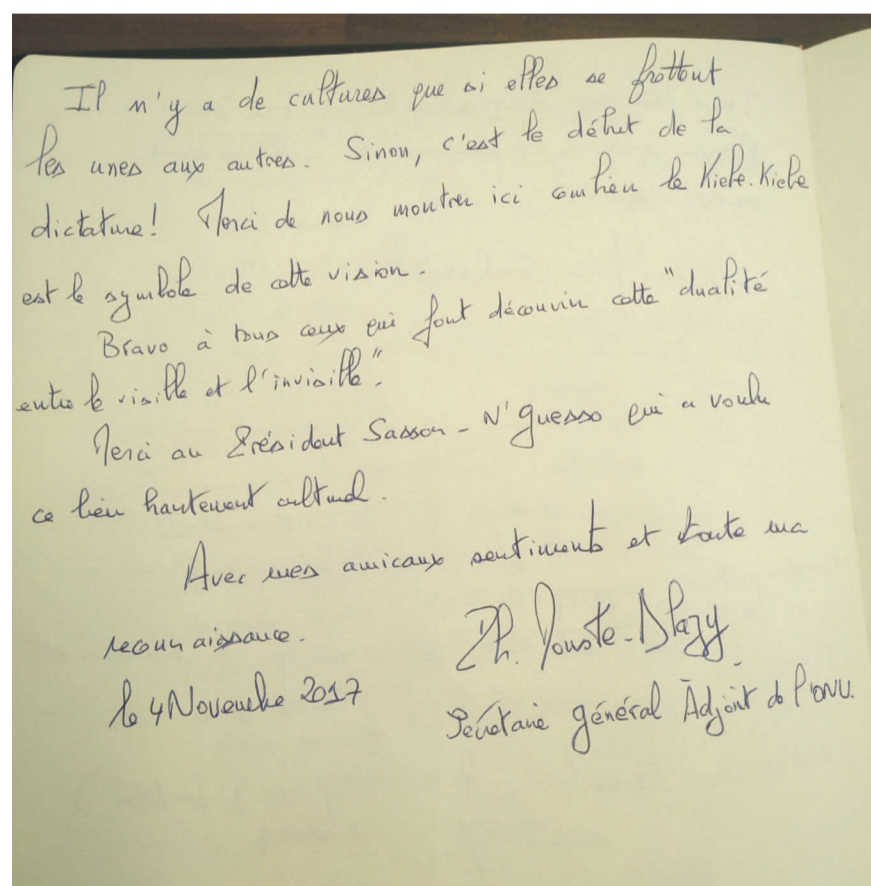 Il n'y a de cultures que si elles se frottent
les unes aux autres. Sinon, c'est le début de la
dictature! Merci de nous montrer ici combien le Kiebe-Kiebe
est le symbole de cette vision.
Bravo à tous ceux qui font découvrir cette "dualité
entre le visible et l'invisible".
Merci au Président Sassou-N'guesso qui a voulu
ce lieu hautement culturel.
Avec mes amicaux sentiments et toute ma
reconnaissance.
le 4 Novembre 2017
Ph. Douste-Blazy
Secrétaire général Adjoint de l'ONU.